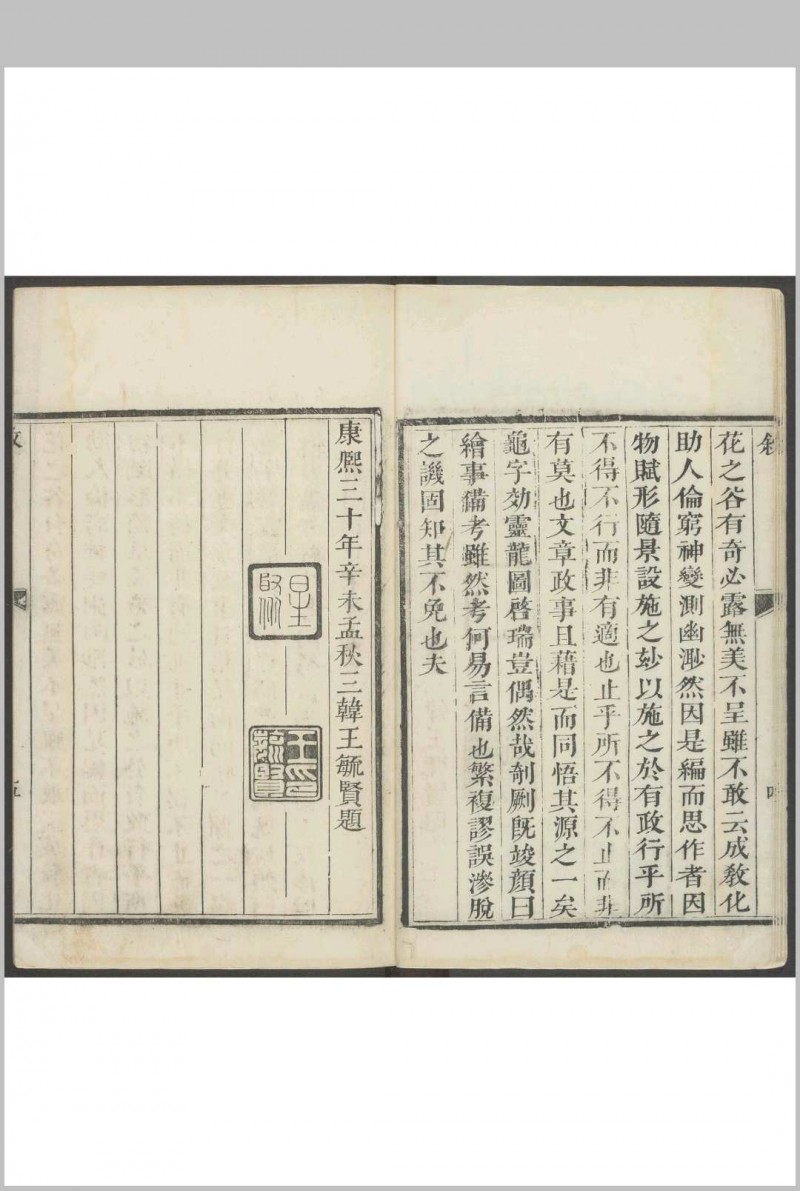 花之谷有奇必露無美不呈雖不敢云成敎化
助人倫窮神變測幽渺然因是編而思作者因
物賦形隨景設施之玅以施之於有政行乎所
不得不行而非有適也止乎所不得不止而非
有莫也文章政事且藉是而同悟其源之一矣
龜字効靈龍圖啓瑞豈偶然哉剞劂旣竣顏曰
繪事備考雖然考何易言備也繁複謬誤滲脫
之譏固知其不免也夫
康熈三十年辛未孟秋三韓王毓賢題
王毓賢印